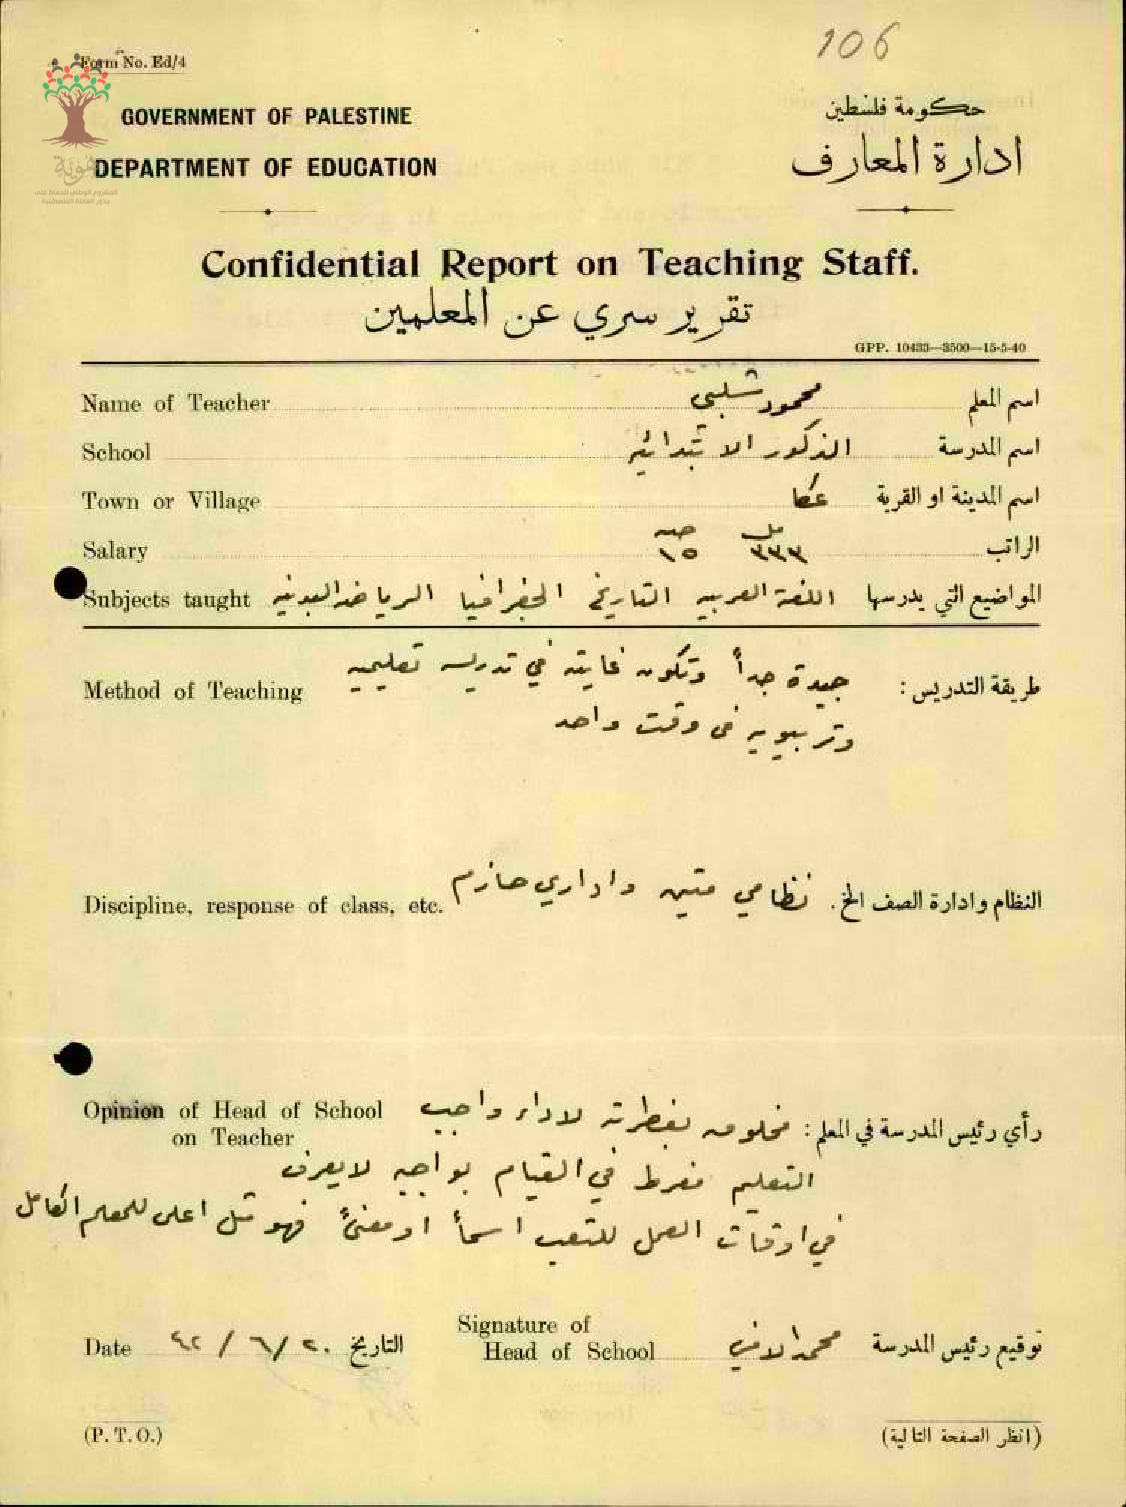 106
Form No. Ed/4
GOVERNMENT OF PALESTINE
حكومة فلسطين
DEPARTMENT OF EDUCATION
ادارة المعارف
هوية
المشروع الوطني للحفاظ على
جذور العائلة الفلسطينية
Confidential Report on Teaching Staff.
تقرير سري عن المعلمين
GPP. 10433—3500—15-5-40
Name of Teacher محمود شلبي اسم المعلم
School الذكور الابتدائيه اسم المدرسة
Town or Village عكا اسم المدينة او القرية
Salary مل ٣٣٣ جنيه ١٥ الراتب
Subjects taught المواضيع التي يدرسها اللغة العربيه التاريخ الجغرافيا الرياضه البدنيه
Method of Teaching طريقة التدريس: جيدة جداً وتكون غايته في تدريسه تعليميه
وتربيويه في وقت واحد
Discipline, response of class, etc. النظام وادارة الصف الخ. نظامي متين واداري حازم
Opinion of Head of School رأي رئيس المدرسة في المعلم: مخلوق بفطرته لاداء واجب
on Teacher
التعليم مفرط في القيام بواجبه لا يعرف
في اوقات العمل للتعب اسماً او معنىً فهو مثل اعلى للمعلم الكامل
Date ٢٠/٦/٤٢ التاريخ
Signature of
Head of School توقيع رئيس المدرسة
(P. T. O.)
(انظر الصفحة التالية)